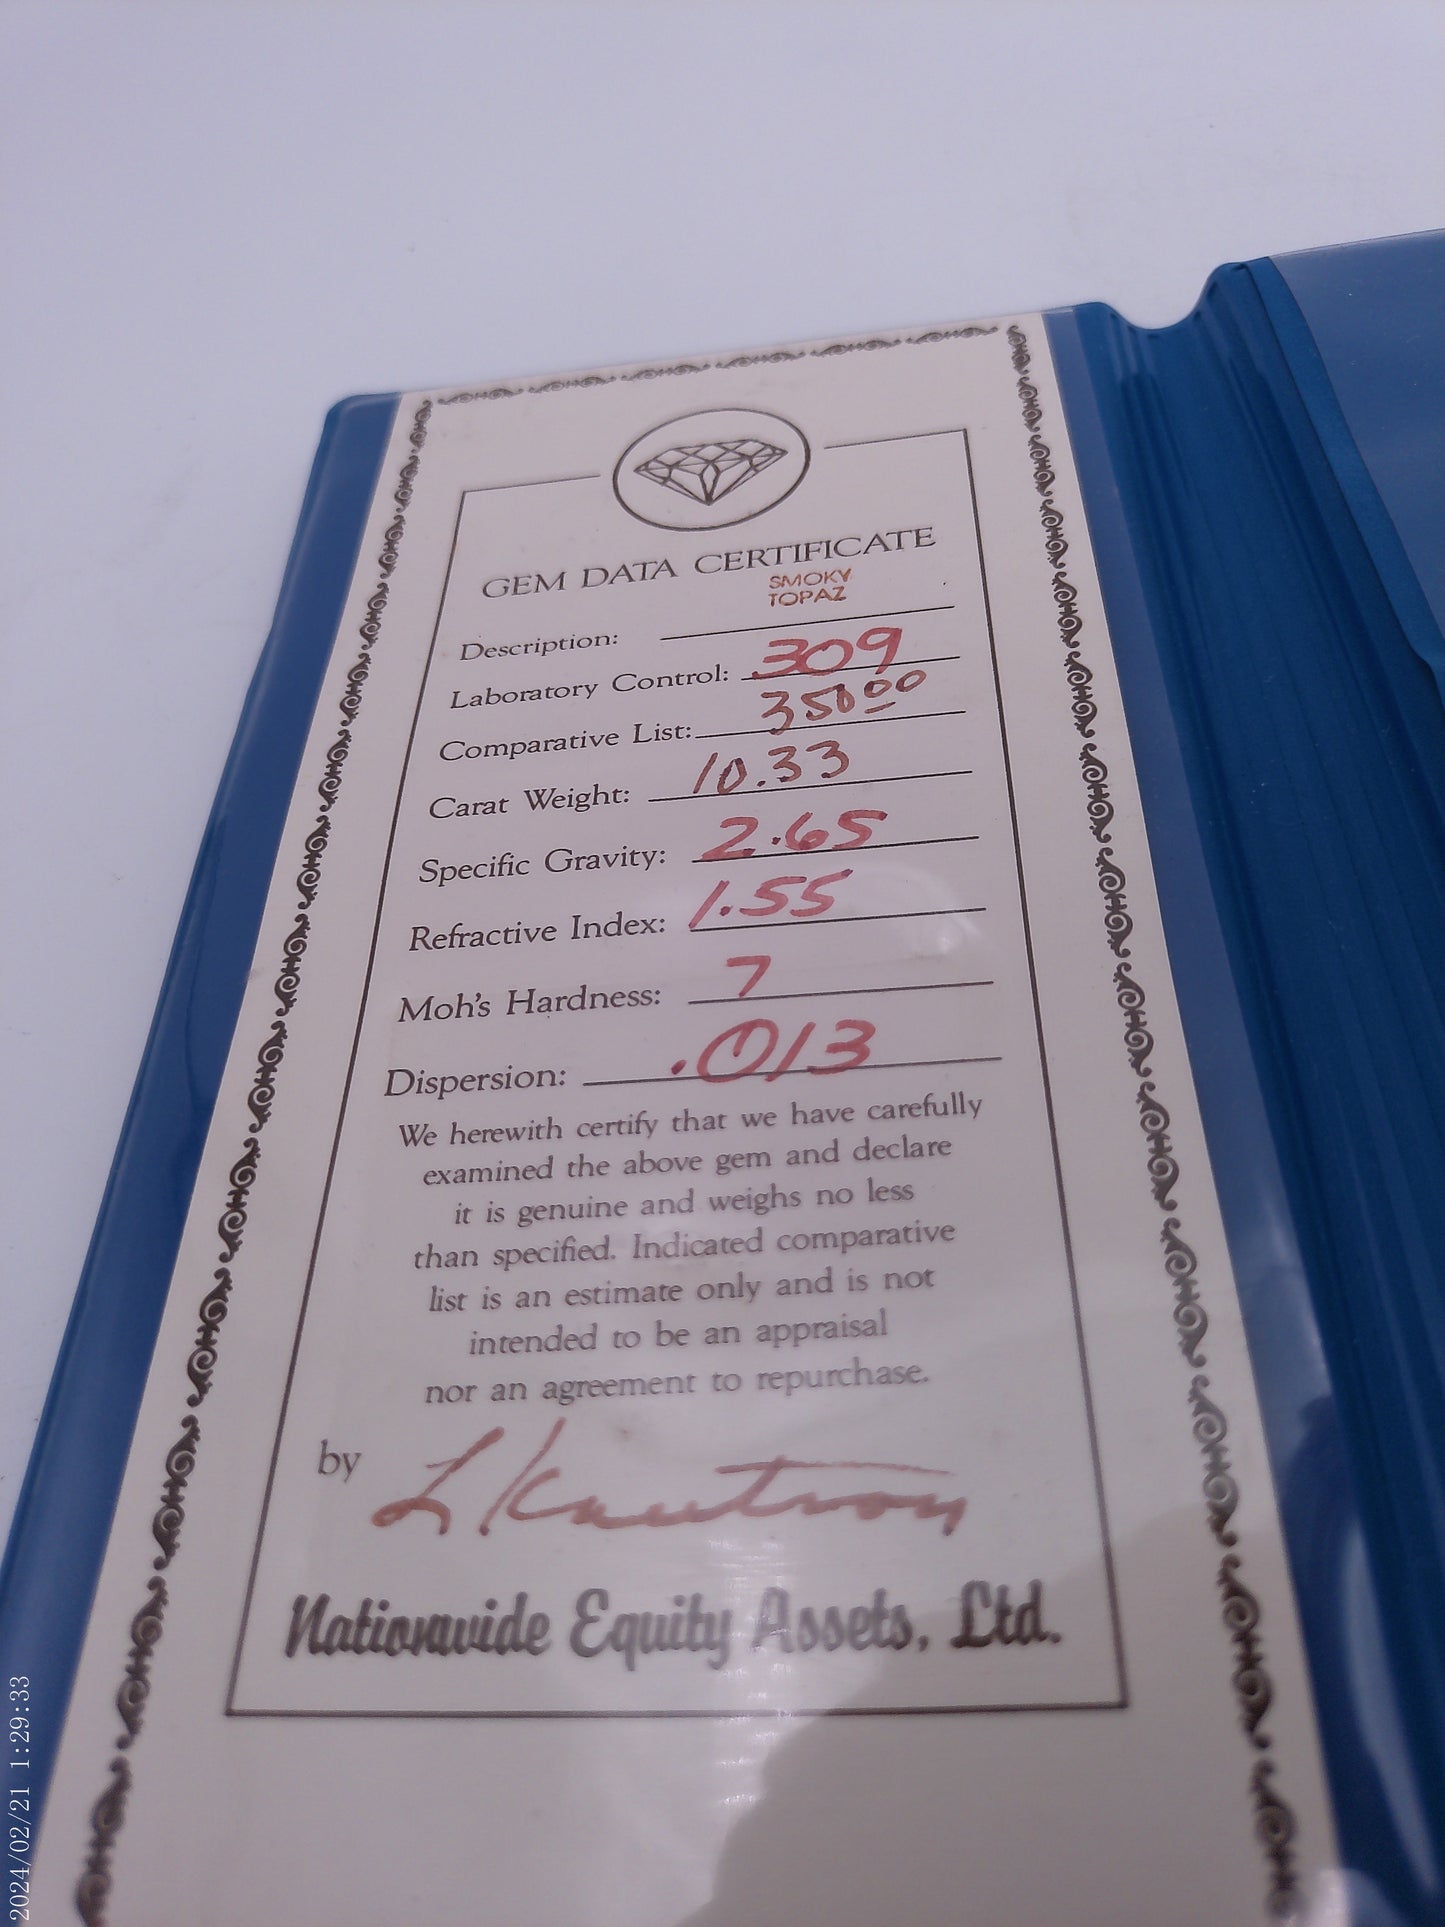 GEM DATA CERTIFICATE
SMOKY
TOPAZ
Description:
Laboratory Control: 309
Comparative List: 350.00
Carat Weight: 10.33
Specific Gravity: 2.65
Refractive Index: 1.55
Moh's Hardness: 7
Dispersion: .013
We herewith certify that we have carefully
examined the above gem and declare
it is genuine and weighs no less
than specified. Indicated comparative
list is an estimate only and is not
intended to be an appraisal
nor an agreement to repurchase.
by
Nationwide Equity Assets, Ltd.
2024/02/21 1:29:33